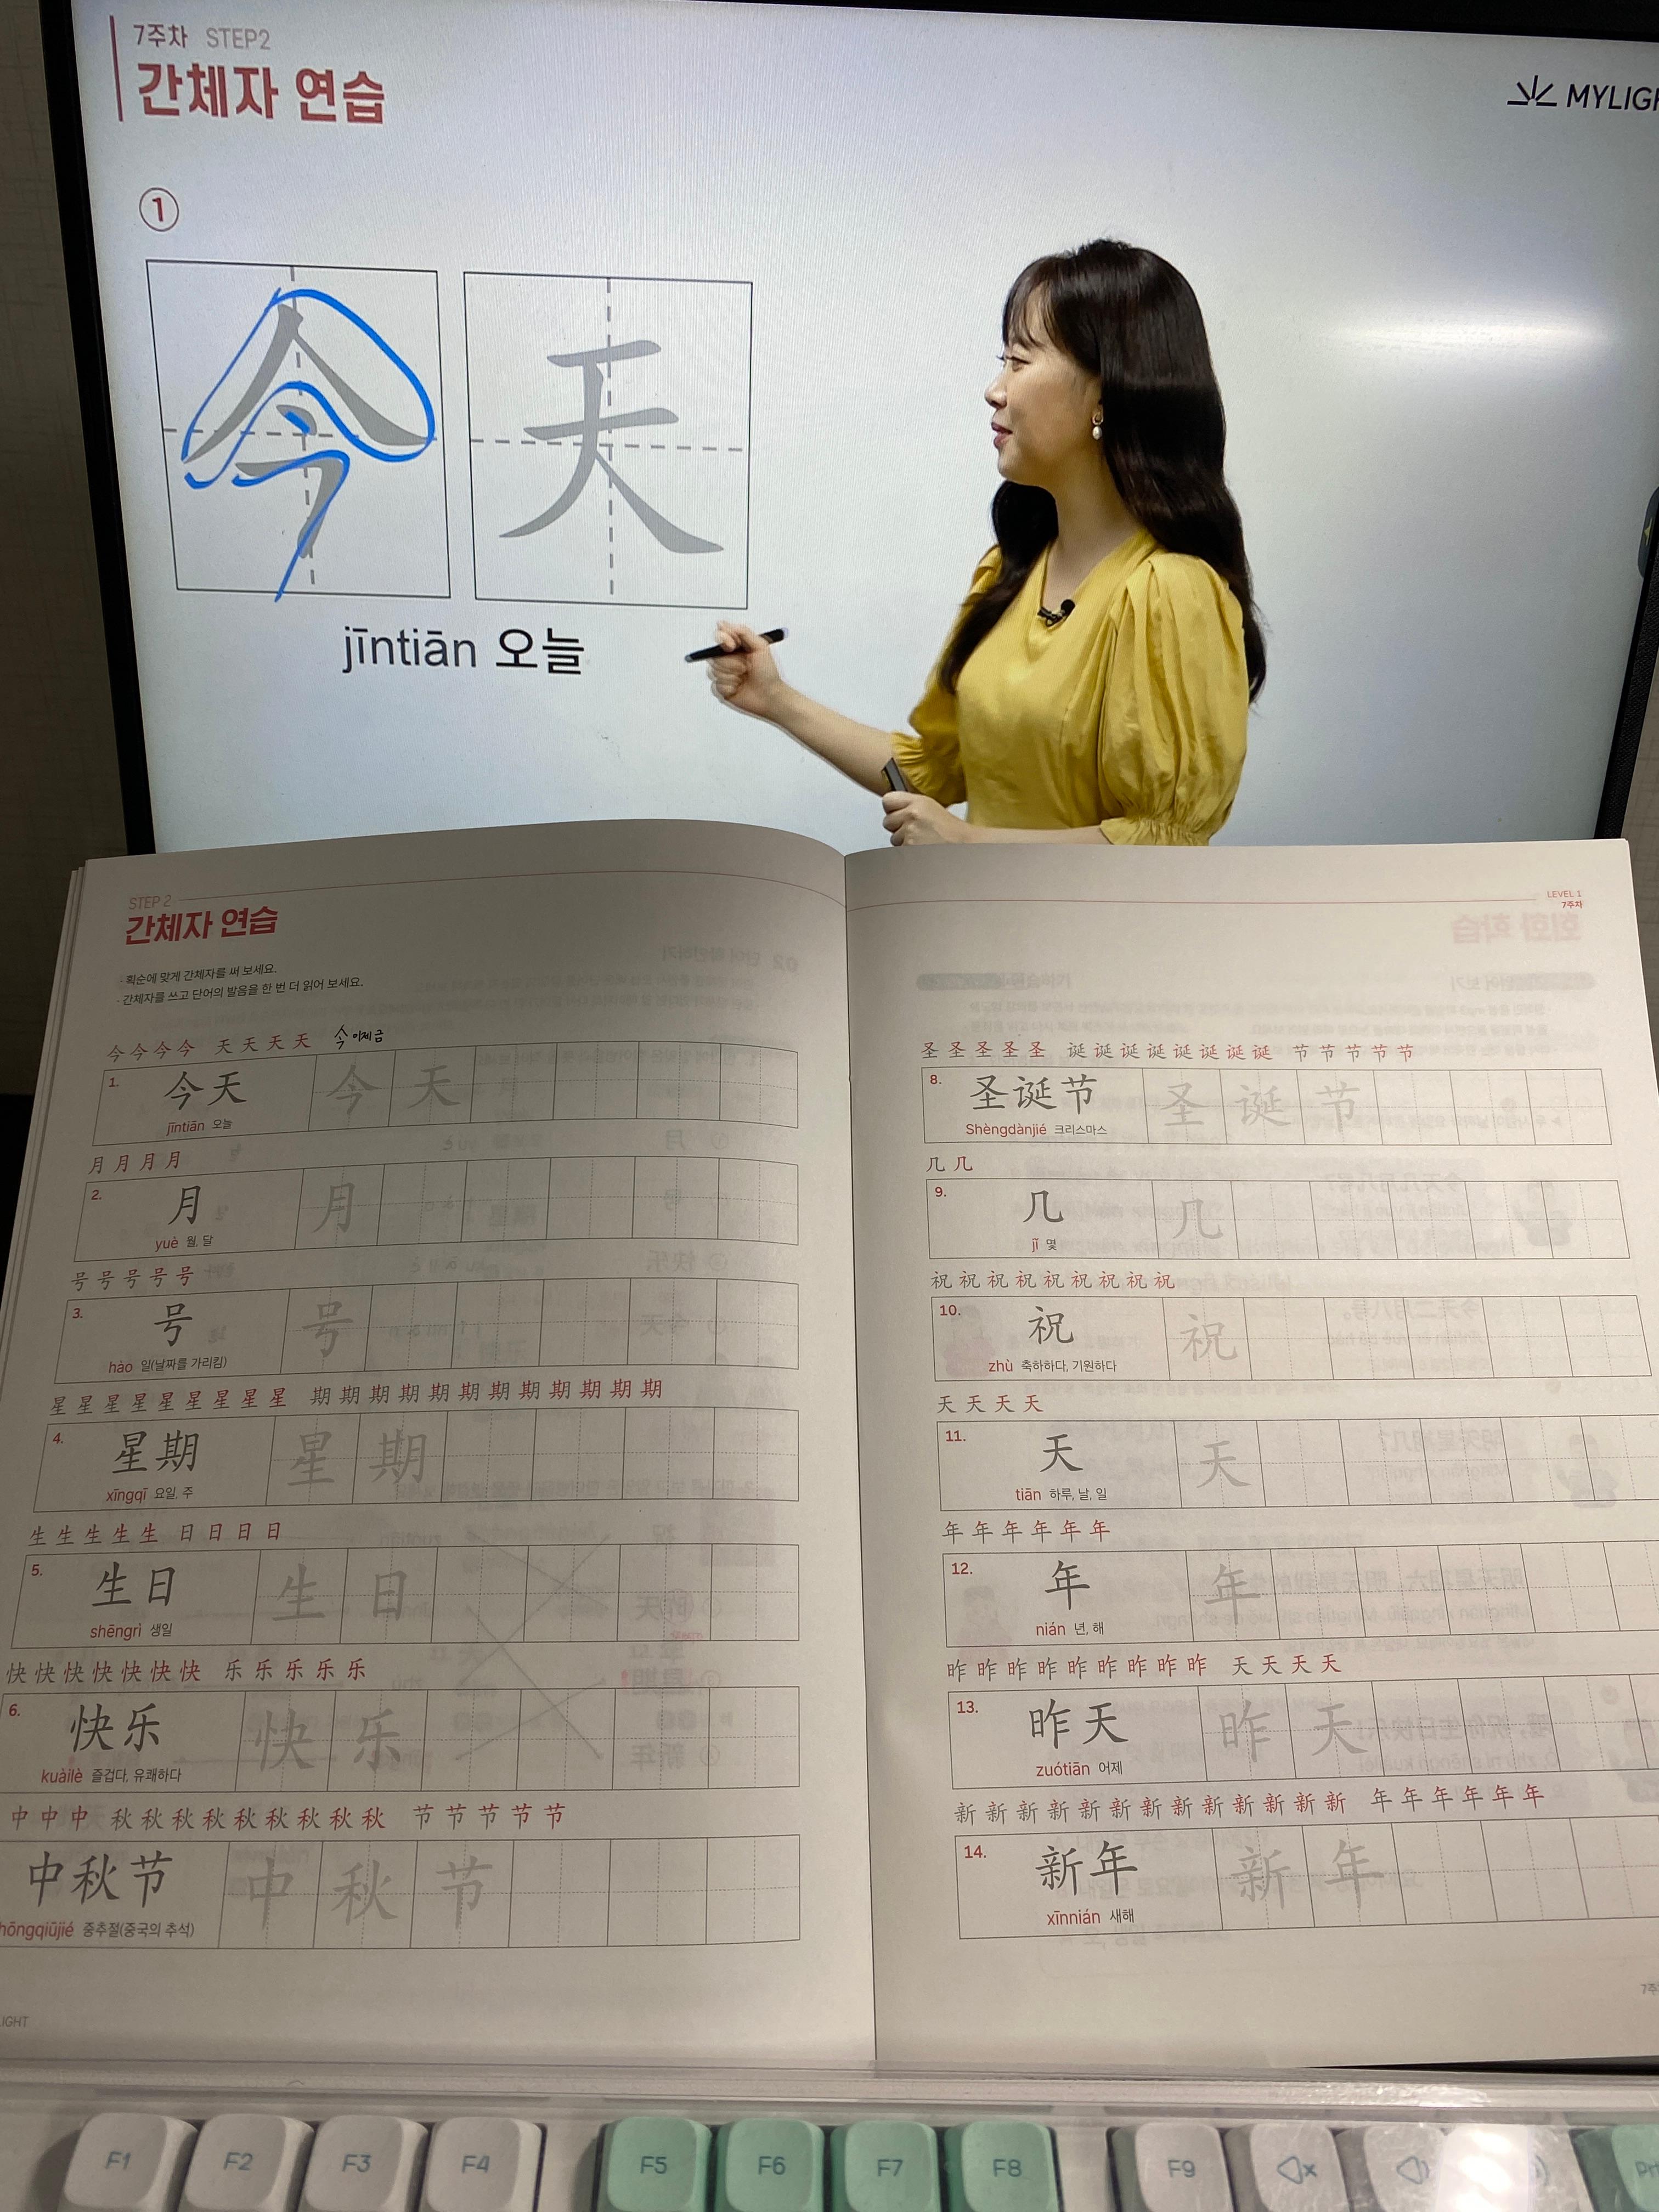 7주차 STEP2
간체자 연습
MYLIGH
①
今天
jīntiān 오늘
STEP 2
간체자 연습
· 획순에 맞게 간체자를 써 보세요.
· 간체자를 쓰고 단어의 발음을 한 번 더 읽어 보세요.
今今今今 天天天天 今 이제 금
1. 今天 今 天
jīntiān 오늘
月月月月
2. 月 月
yuè 월, 달
号号号号号
3. 号 号
hào 일(날짜를 가리킴)
星星星星星星星星星 期期期期期期期期期期期期
4. 星期 星 期
xīngqī 요일, 주
生生生生生 日日日日
5. 生日 生 日
shēngrì 생일
快快快快快快快 乐乐乐乐乐
6. 快乐 快 乐
kuàilè 즐겁다, 유쾌하다
中中中 秋秋秋秋秋秋秋秋秋 节节节节节
中秋节 中 秋 节
hōngqiūjié 중추절(중국의 추석)
LIGHT
LEVEL 1
7주차
圣圣圣圣圣 诞诞诞诞诞诞诞诞 节节节节节
8. 圣诞节 圣 诞 节
Shèngdànjié 크리스마스
几几
9. 几 几
jǐ 몇
祝祝祝祝祝祝祝祝祝
10. 祝 祝
zhù 축하하다, 기원하다
天天天天
11. 天 天
tiān 하루, 날, 일
年年年年年年
12. 年 年
nián 년, 해
昨昨昨昨昨昨昨昨昨 天天天天
13. 昨天 昨 天
zuótiān 어제
新新新新新新新新新新新新新 年年年年年年
14. 新年 新 年
xīnnián 새해
7주
F1 F2 F3 F4 F5 F6 F7 F8 F9 Pr